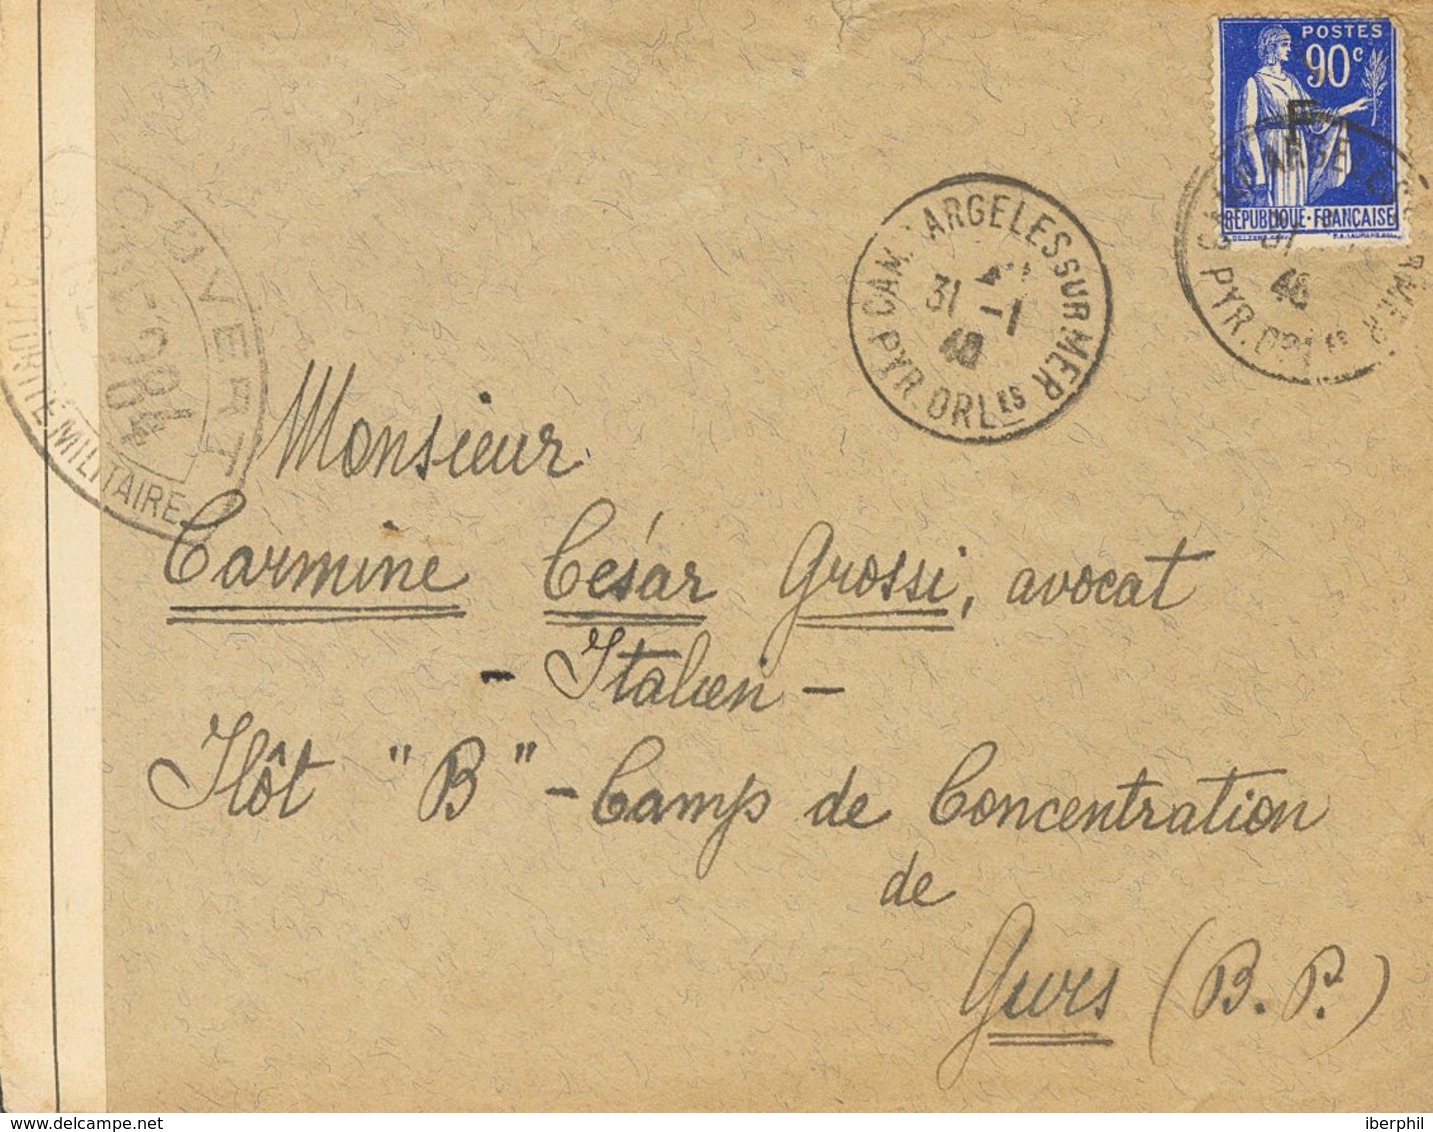 POSTES
90c
F
RÉPUBLIQUE · FRANÇAISE
CAMP ARGELES SUR MER
31 -1
40
PYR. ORLES
CAMP ARGELES SUR MER
31
40
PYR. ORLES
OUVERT
AUTORITÉ MILITAIRE
Monsieur
Carmine César Grossi, avocat
- Italien -
Ilôt "B" - Camp de Concentration
de
Gurs (B. P.)
iberphil